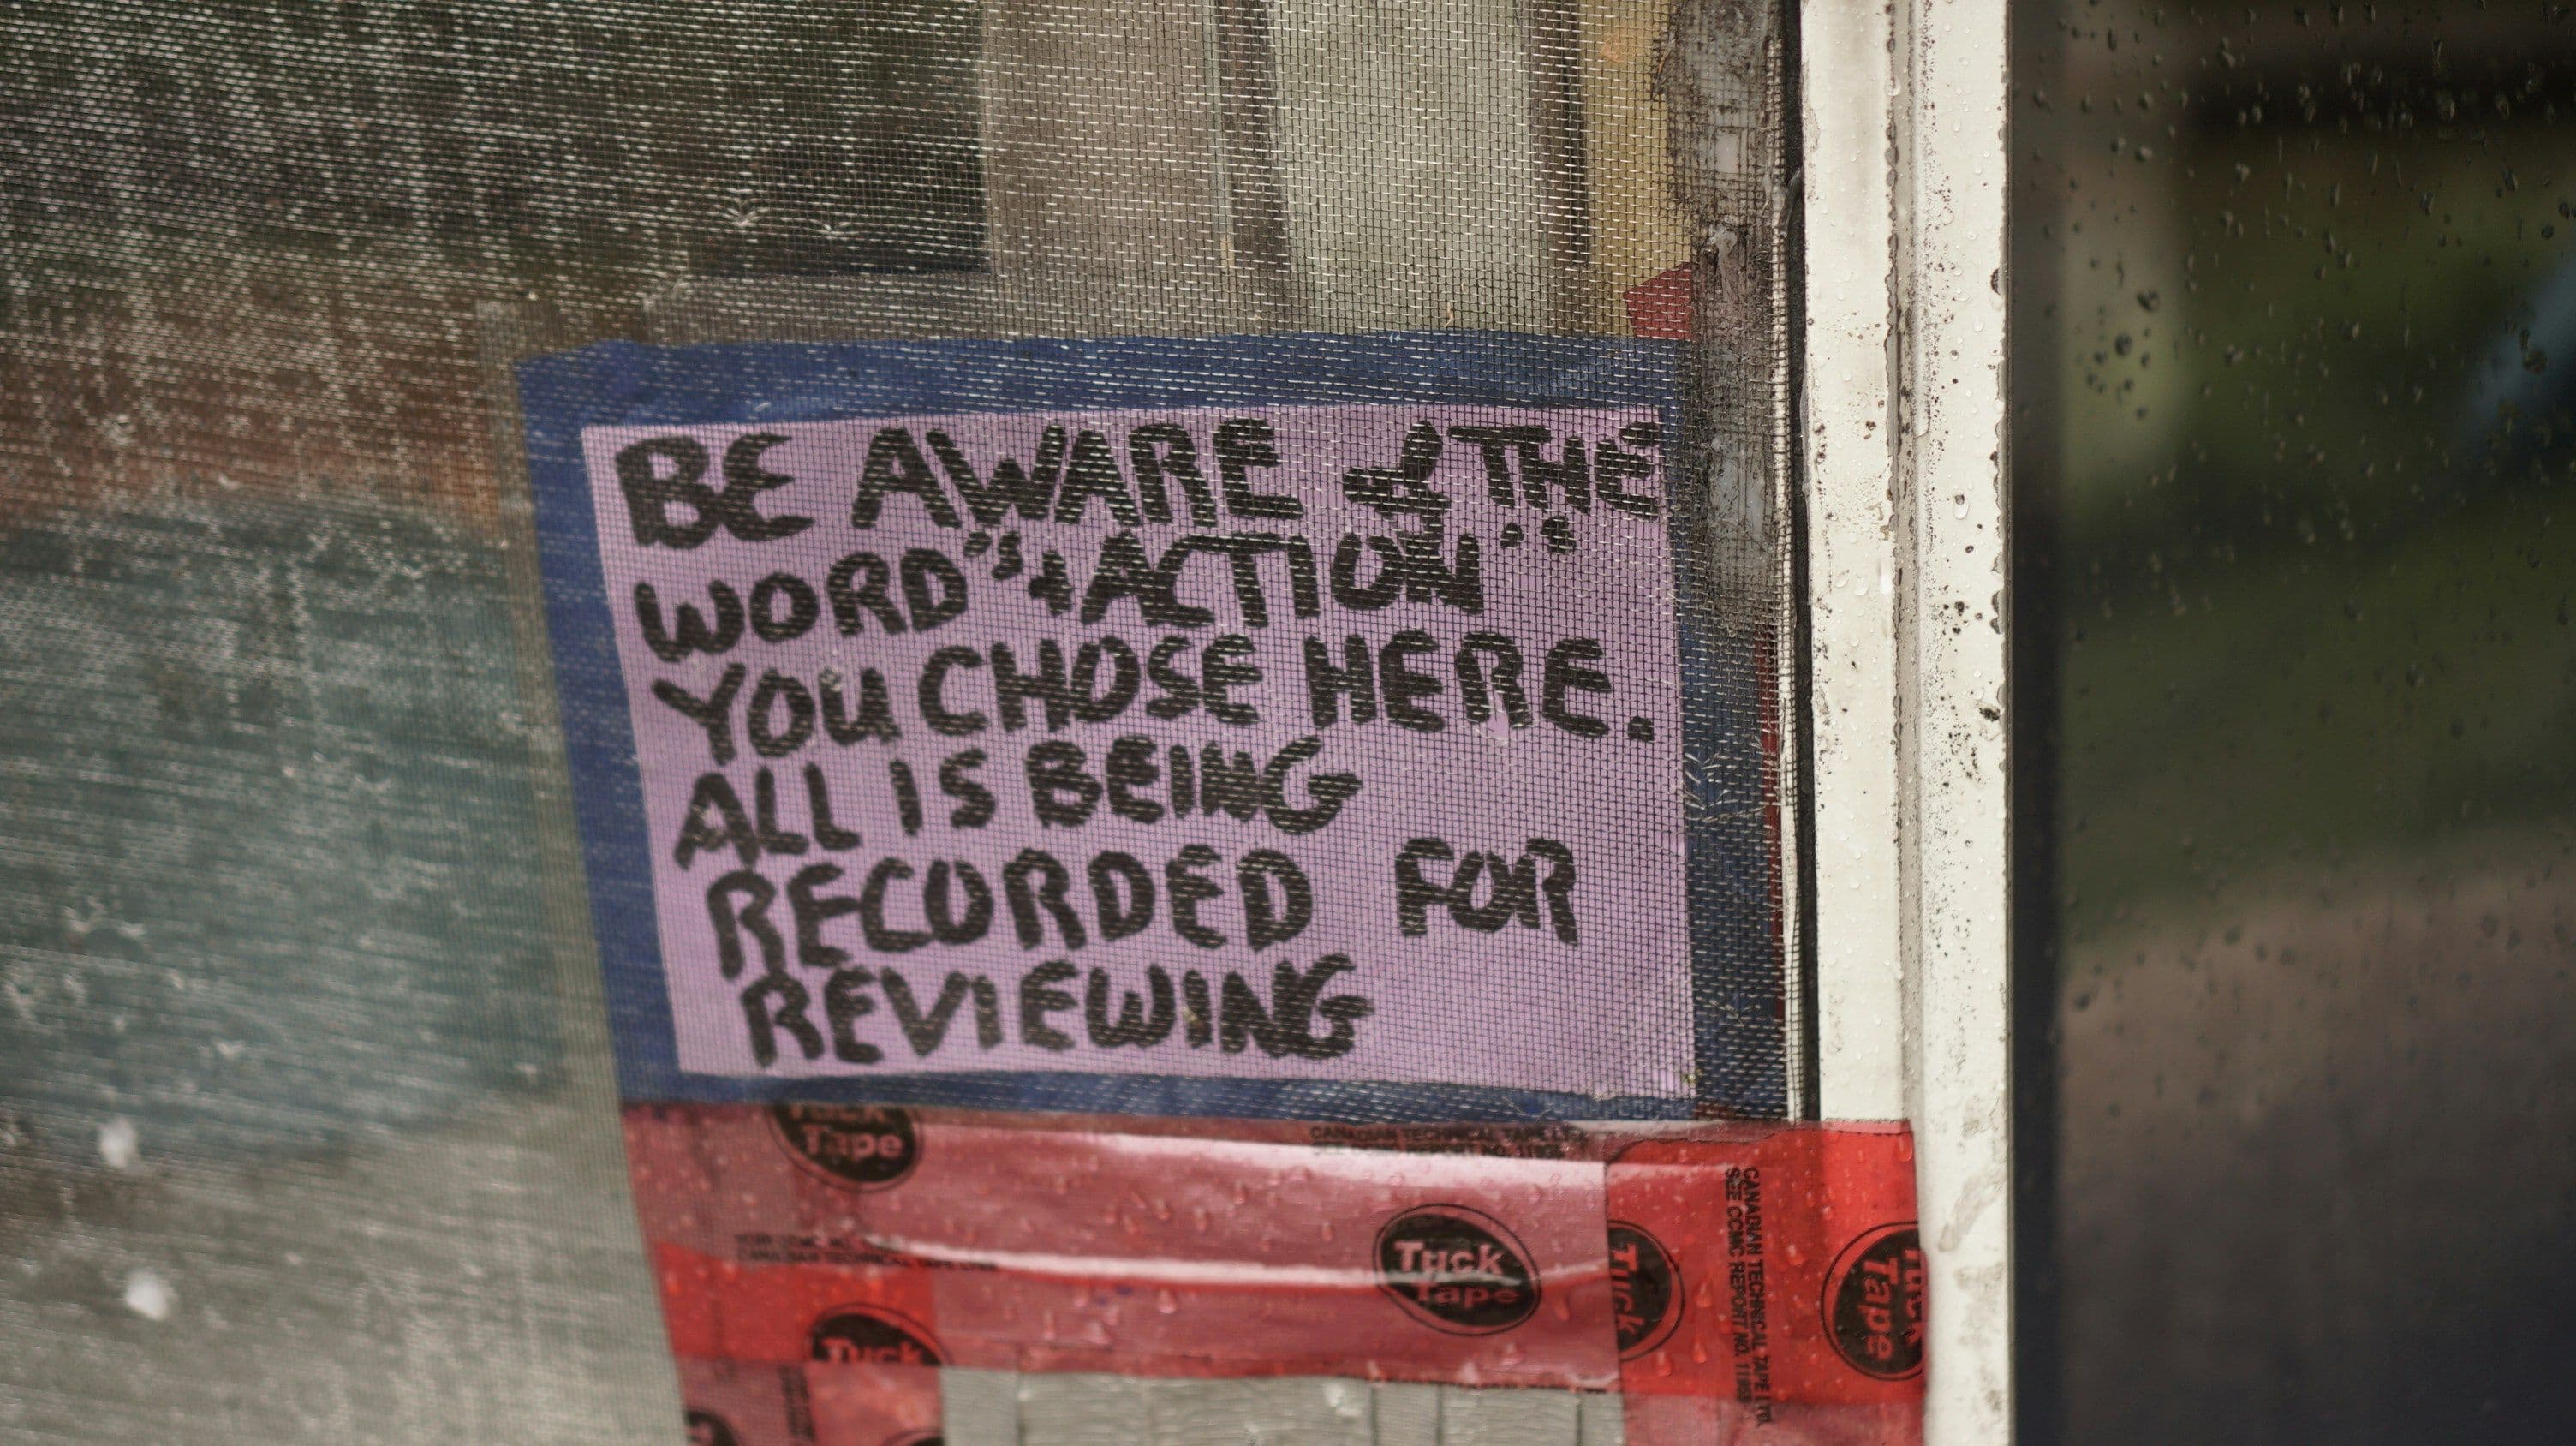 BE AWARE of THE
WORD'S + ACTION'S
YOU CHOSE HERE.
ALL IS BEING
RECORDED FOR
REVIEWING
Tuck
Tape
Tuck
Tape
Tuck
Tuck
Tape
CANADIAN TECHNICAL TAPE LTD.
SEE CCMC REPORT NO.
Tuck